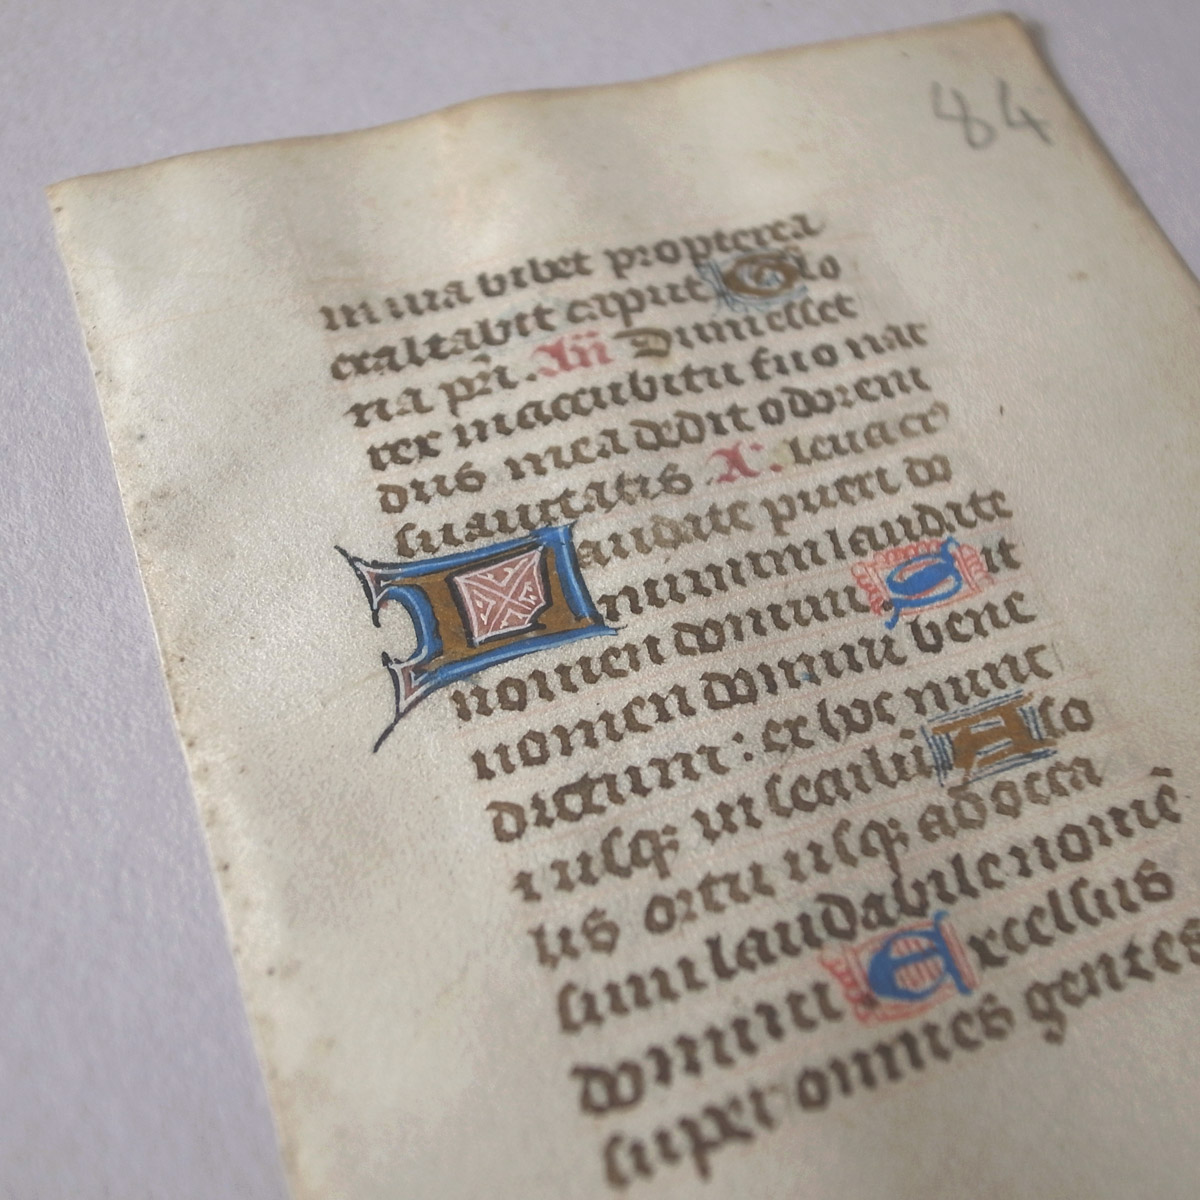 84
in uia bibet propterea
exaltabit caput Glo
ria pr̄i. Añ Dum esset
rex in accubitu suo nar
dus mea dedit odorem
suauitatis
Laudate pueri do
minum laudate
nomen domini. Sit
nomen domini bene
dictum: ex hoc nunc
et usq; in seculū A so
lis ortu usq; ad occa
sum laudabile nomē
domini. Excelsus
super omnes gentes